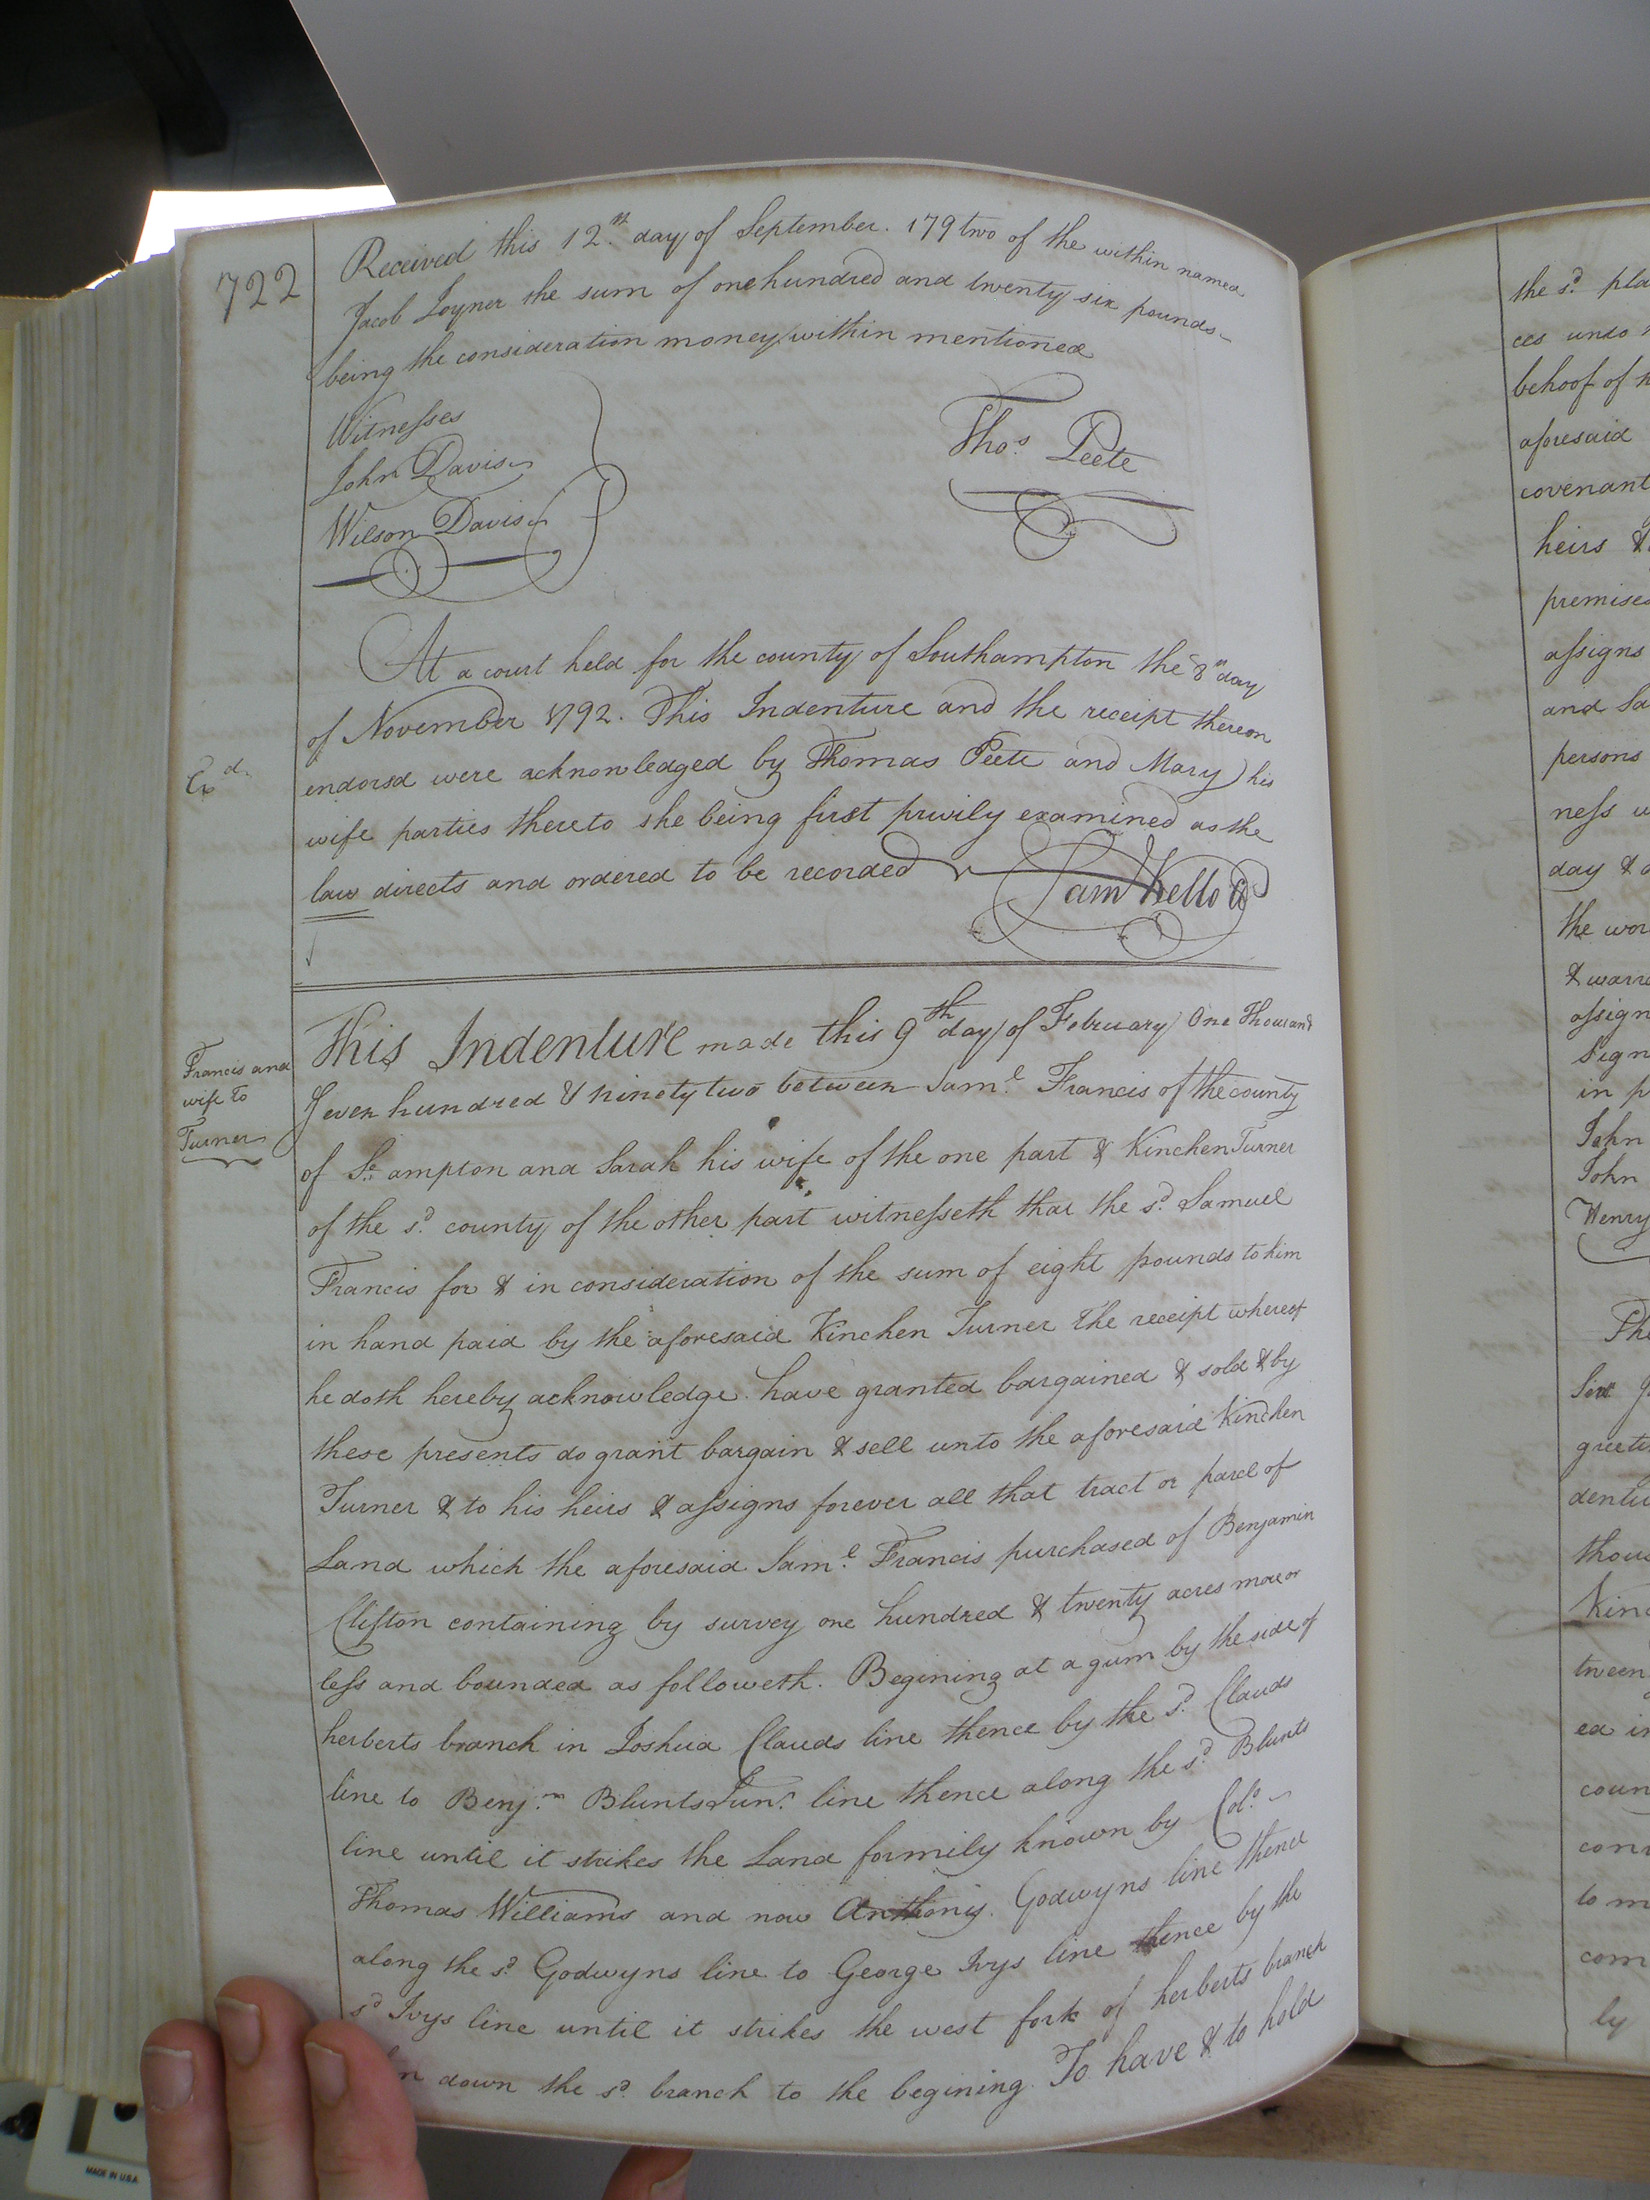 722
Received this 12.th day of September. 179two of the within named
Jacob Joyner the sum of one hundred and twenty six pounds
being the consideration money within mentioned
Witnesses
John Davis
Wilson Davis
Thos. Peete
At a court held for the county of Southampton the 8th day
of November 1792. This Indenture and the receipt thereon
endorsd were acknowledged by Thomas Peete and Mary his
wife parties thereto she being first privily examined as the
law directs and ordered to be recorded
Sam Kello
Exd.
Francis and
wife to
Turner
This Indenture made this 9th day of February One Thousand
Seven hundred & ninety two between Saml. Francis of the county
of So. ampton and Sarah his wife of the one part & Kinchen Turner
of the sd. county of the other part witnesseth that the sd. Samuel
Francis for & in consideration of the sum of eight pounds to him
in hand paid by the aforesaid Kinchen Turner the receipt whereof
he doth hereby acknowledge. have granted bargained & sold & by
these presents do grant bargain & sell unto the aforesaid Kinchen
Turner & to his heirs & assigns forever all that tract or parcel of
Land which the aforesaid Saml. Francis purchased of Benjamin
Clifton containing by survey one hundred & twenty acres more or
less and bounded as followeth. Begining at a gum by the side of
herberts branch in Joshua Clauds line thence by the sd. Clauds
line to Benjm. Blunts Junr. line thence along the sd. Blunts
line until it strikes the Land formily known by Colo.
Thomas Williams and now Anthony. Godwyns line thence
along the sd. Godwyns line to George Ivys line thence by the
sd Ivys line until it strikes the west fork of herberts branch
down the sd. branch to the begining. To have & to hold
the sd. pla
ces unto
behoof of
aforesaid
covenant
heirs &
premises
assigns
and Sa
persons
ness w
day & a
the wor
& warra
assign
Sign
in p
John
John
Henry
The
greeti
dentu
thou
Kinc
tween
ed in
coun
con
to m
com
ly
MADE IN U.S.A.